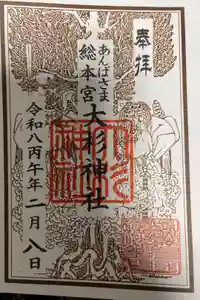 奉拝
あんばさま
総本宮
大杉神社
令和八丙午年二月八日